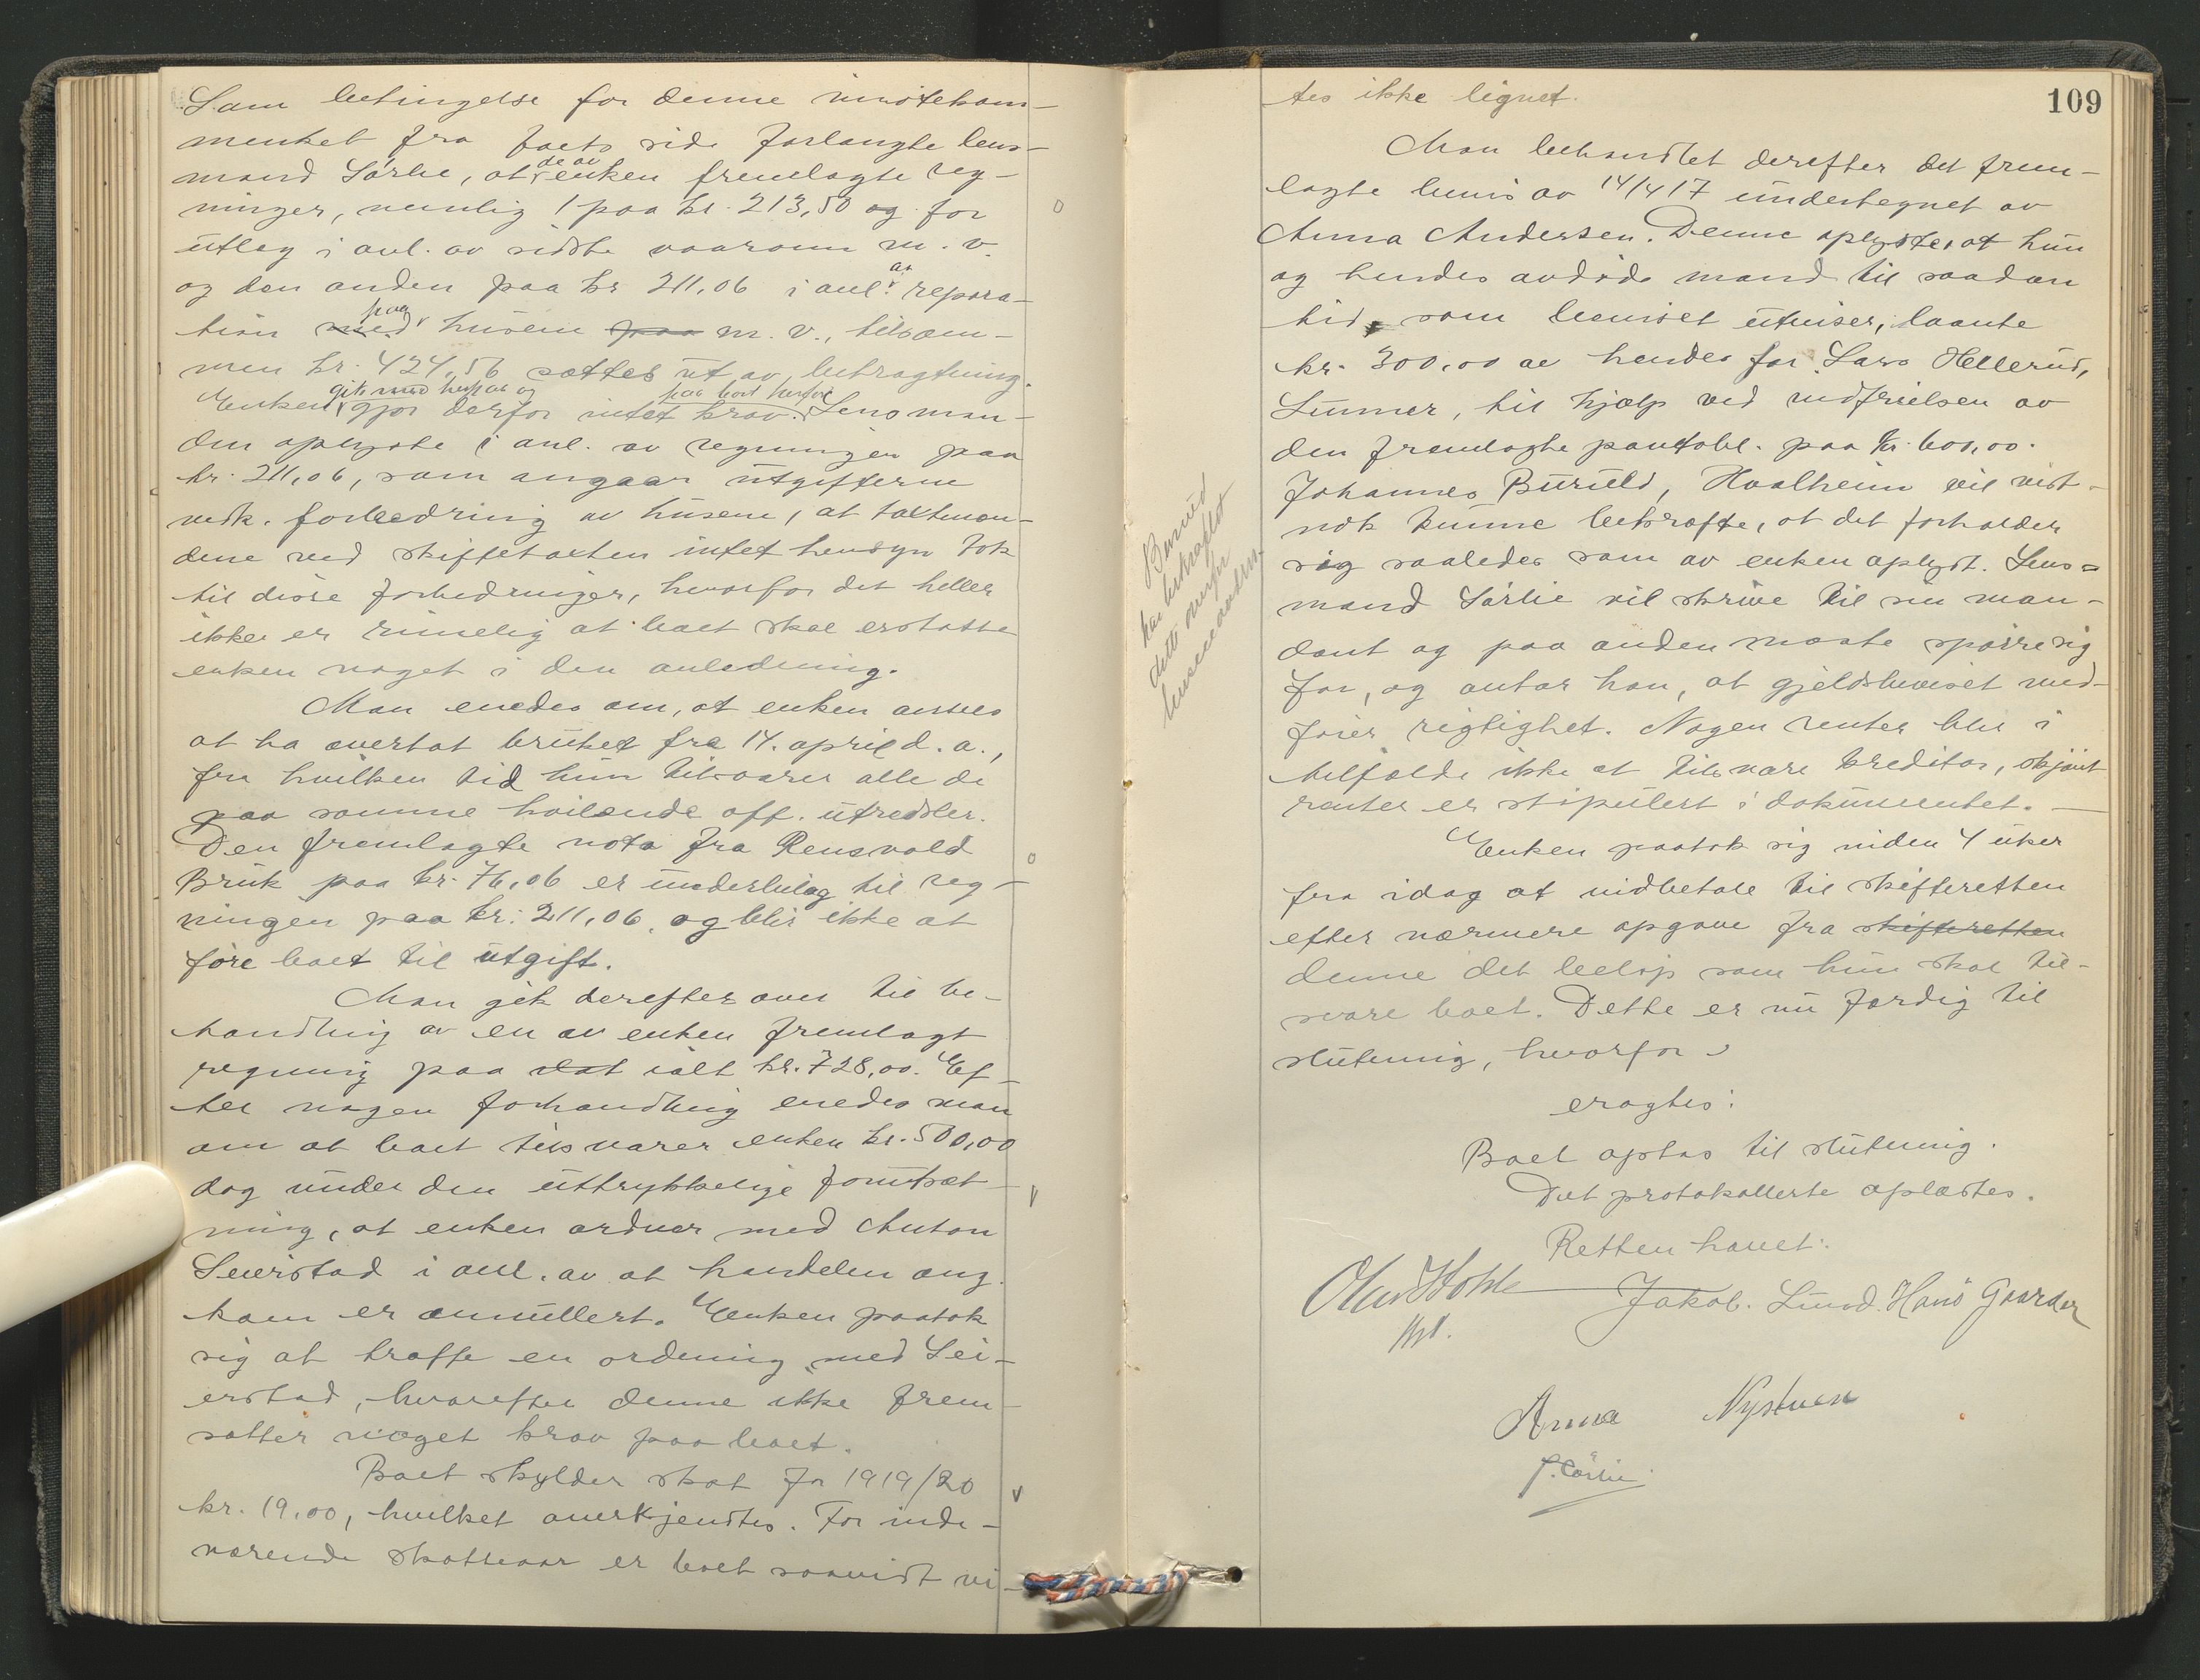 Som betingelse for denne imøtekom-
menhet fra boets side forlangte lens-
mand Sörlie, at de av enken fremlagte reg-
ninger, nemlig 1 paa kr. 213,50 og for
utlæg i anl. av sidste vaaronn m. v.
og den anden paa kr 211,06 i anl. av repara-
tion paa husene m. v., tilsam-
men kr. 424,56 sættes ut av betragtning.
Enken gik med herpaa og gjør derfor intet krav paa boet herfor. Lensman-
den oplyste i anl. av regningen paa
kr. 211,06, som angaar utgifterne
vedk. forbedring av husene, at takstmæn-
dene ved skiftetaksten intet hensyn tok
til disse forbedringer, hvorfor det heller
ikke er rimelig at boet skal erstatte
enken noget i den anledning.
Man enedes om, at enken ansees
at ha overtat bruket fra 14. april d. a.,
fra hvilken tid hun tilsvarer alle de
paa samme hvilende off. utredsler.
Den fremlagte nota fra Rensvold
Bruk paa kr. 76,06 er underbilag til reg-
ningen paa kr. 211,06, og blir ikke at
føre boet til utgift.
Man gik derefter over til be-
handling av en av enken fremlagt
regning paa ialt kr. 728,00. Ef-
ter nogen forhandling enedes man
om at boet tilsvarer enken kr. 500,00
dog under den uttrykkelige forutsæt-
ning, at enken ordner med Anton
Seierstad i anl. av at handelen ang.
ham er annullert. Enken paatok
sig at træffe en ordning med Sei-
erstad, hvorefter denne ikke frem-
sætter noget krav paa boet.
Boet skylder skat for 1919/20
kr. 19,00, hvilket anerkjendtes. For inde-
værende skatteaar er boet saavidt vi-
109
tes ikke lignet.
Man behandlet derefter det frem-
lagte bevis av 14/4 17 undertegnet av
Anna Andersen. Denne oplyste, at hun
og hendes avdøde mand til saadan
tid som beviset utviser, laante
kr. 300,00 av hendes far Lars Hellerud,
Lunner, til hjælp ved indfrielsen av
den fremlagte pantobl. paa kr. 600,00.
Johannes Buruld, Hvalheim vil vist-
nok kunne bekræfte, at det forholder
sig saaledes som av enken oplyst. Lens=
mand Sörlie vil skrive til sin man-
dant og paa anden maate spørre sig
for, og antar han, at gjeldsbeviset med-
fører rigtighet. Nogen renter blir i
tilfælde ikke at tilsvare kreditor, skjønt
renter er stipulert i dokumentet. —
Buruld
har bekræftet
dette overfor
lensmanden
Enken paatok sig inden 4 uker
fra idag at indbetale til skifteretten
efter nærmere opgave fra skifteretten
denne det beløp som hun skal til-
svare boet. Dette er nu færdig til
slutning, hvorfor
eragtes:
Boet optas til slutning.
Det protokollerte oplæstes.
Retten hævet.
Jakob. Lund. Hans Gaarder
Anna Nystuen